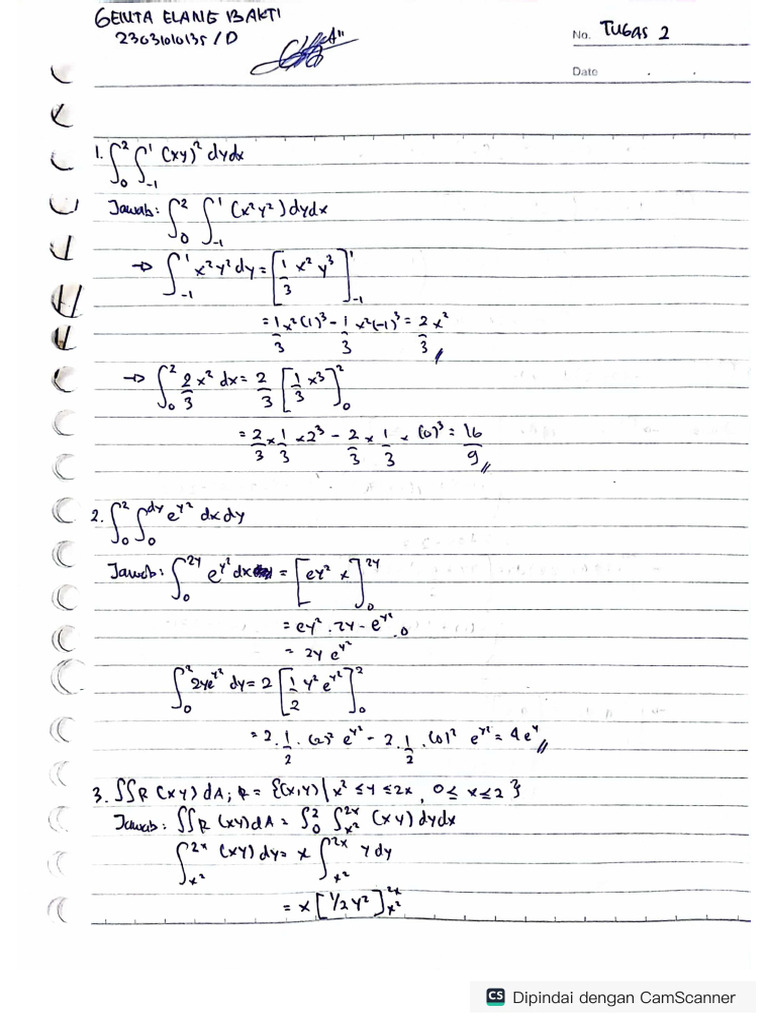 GENTA ELANG BAKTI
23031010135 / D
No. TUGAS 2
Date . .
1. ∫₀² ∫₋₁¹ (xy)² dy dx
Jawab: ∫₀² ∫₋₁¹ (x²y²) dy dx
→ ∫₋₁¹ x²y² dy = [1/3 x² y³]₋₁¹
= 1/3 x² (1)³ - 1/3 x² (-1)³ = 2/3 x² //
→ ∫₀² 2/3 x² dx = 2/3 [1/3 x³]₀²
= 2/3 × 1/3 × 2³ - 2/3 × 1/3 × (0)³ = 16/9 //
2. ∫₀² ∫₀^dy e^y² dx dy
Jawab: ∫₀^2y e^y² dx = [ey² x]₀^2y
= ey² . 2y - e^y² . 0
= 2y e^y²
∫₀² 2ye^y² dy = 2 [1/2 y² e^y²]₀²
= 2. 1/2 . (2)² e^y² - 2. 1/2 . (0)² e^y² = 4e^4 //
3. ∫∫R (xy) dA; R = {(x,y) | x² ≤ y ≤ 2x, 0 ≤ x ≤ 2}
Jawab: ∫∫R (xy) dA = ∫₀² ∫ₓ²^2x (xy) dy dx
∫ₓ²^2x (xy) dy = x ∫ₓ²^2x y dy
= x [1/2 y²]ₓ²^2x
CS Dipindai dengan CamScanner